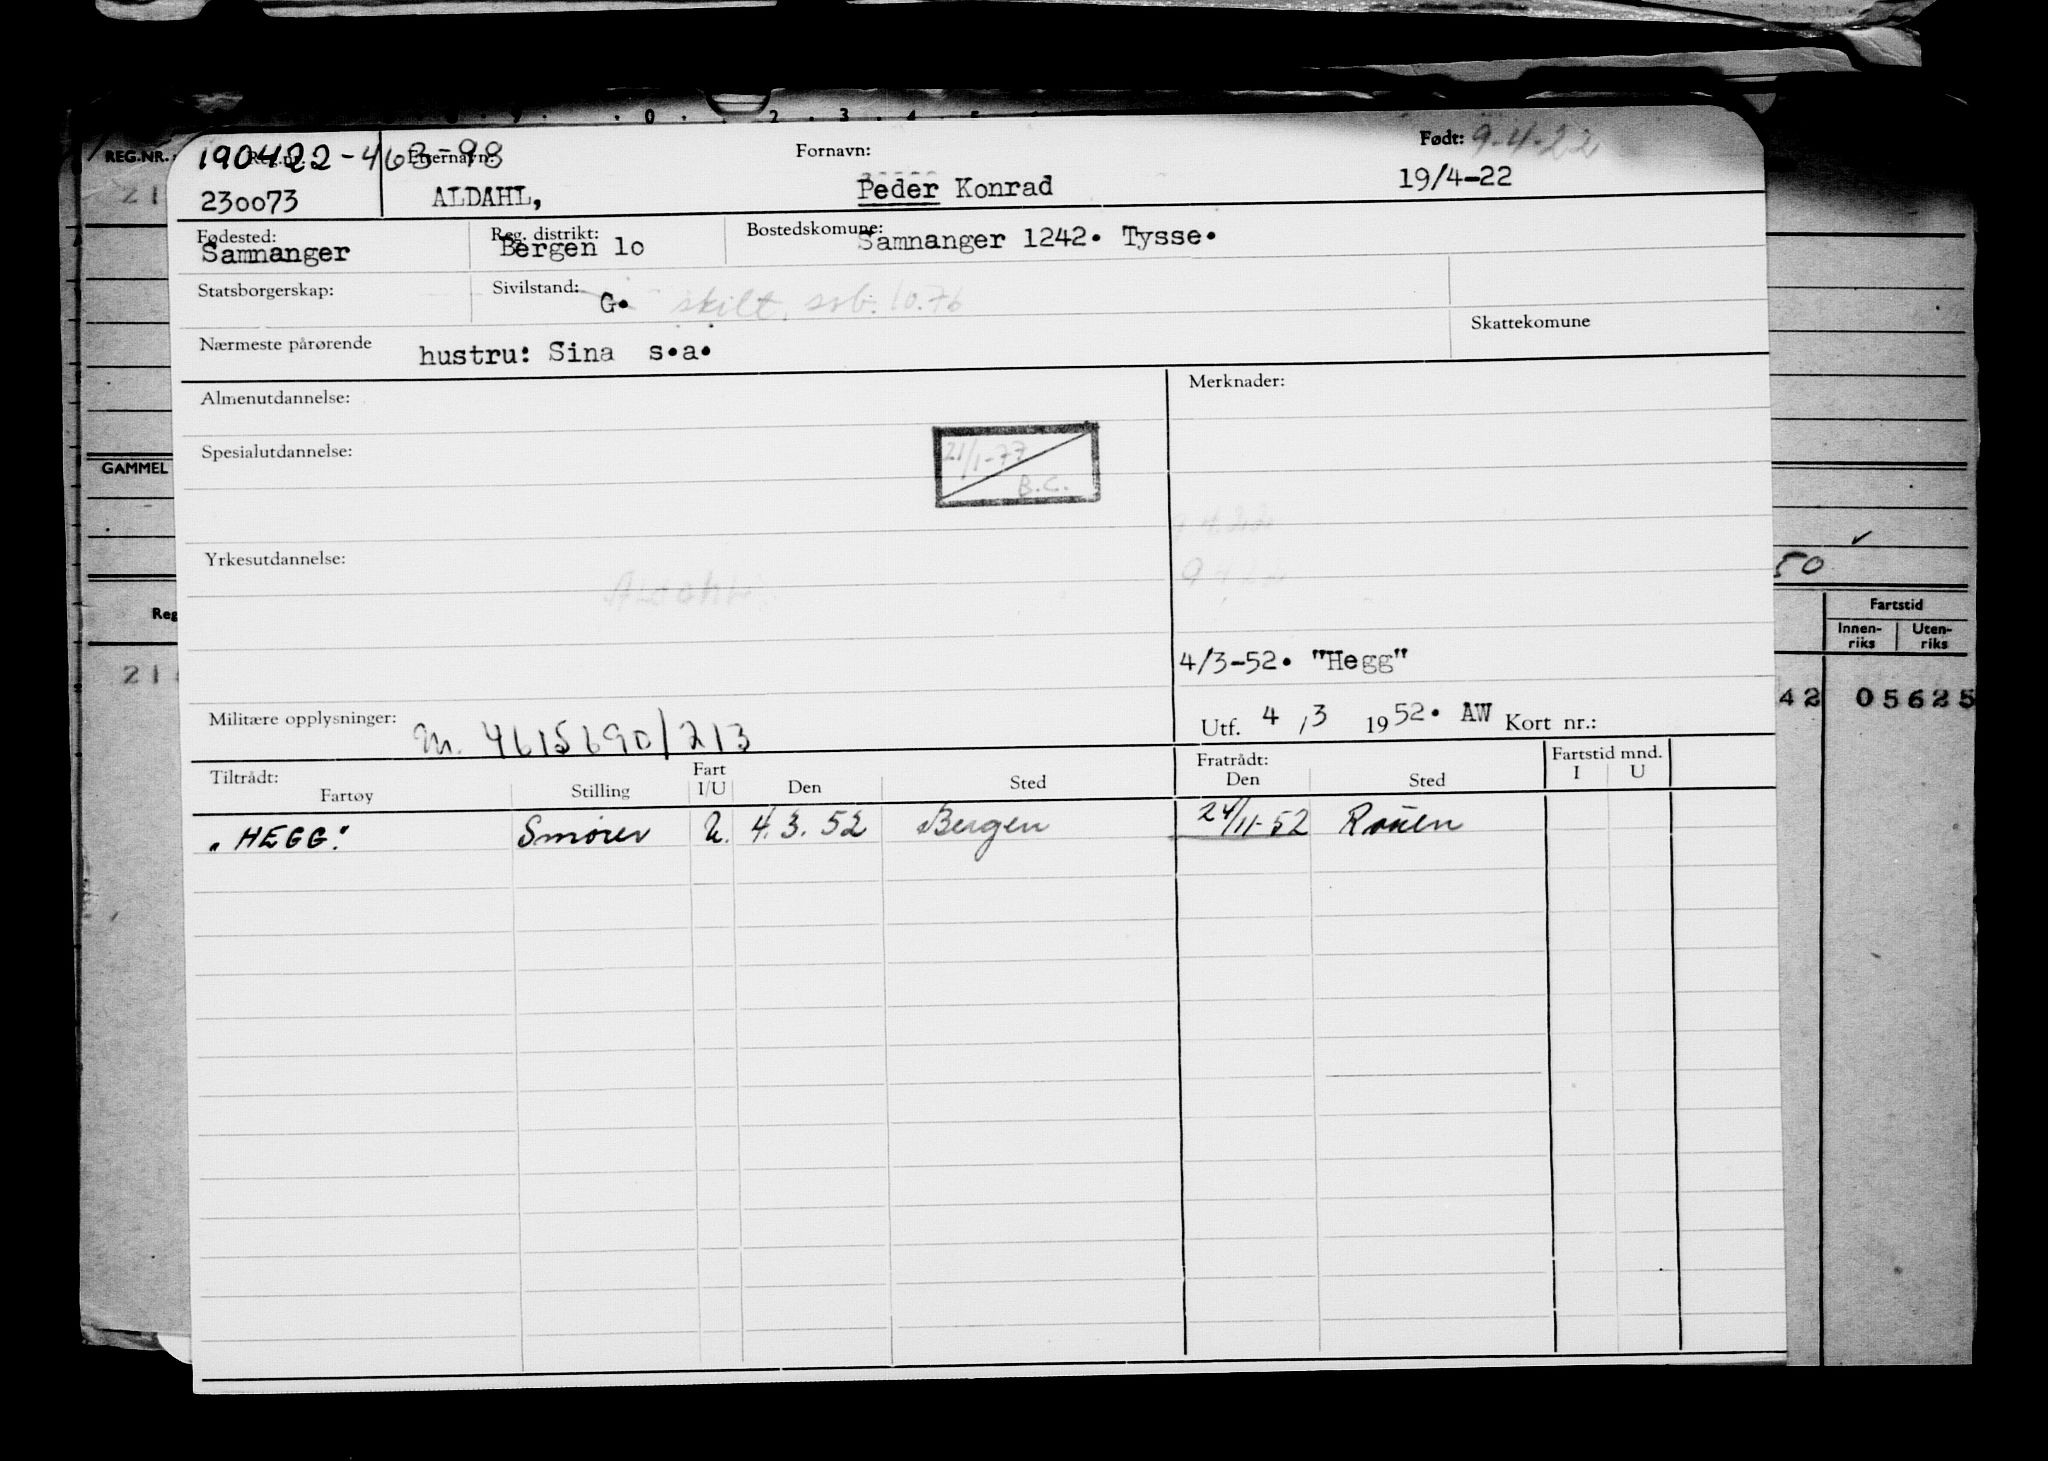 0 . . 2 . 3 . 4 . 5
REG.NR.: 190422-463-98 Reg.nr. Etternavn: Fornavn: Født: 9-4-22
21 230073 ALDAHL, Peder Konrad 19/4-22
Fødested: Reg. distrikt: Bostedskomune:
Samnanger Bergen 1o Samnanger 1242. Tysse.
Statsborgerskap: Sivilstand: G. skilt, 10.76
Skattekomune
Nærmeste pårørende hustru: Sina s.a.
Almenutdannelse: Merknader:
GAMMEL Spesialutdannelse: 21/1-77
B.C.
Yrkesutdannelse: 50
Reg Fartstid
Innen-riks Uten-riks
4/3-52. "Hegg"
21 42 05625
Militære opplysninger: M. 4615690/213 Utf. 4 / 3 1952. AW Kort nr.:
Tiltrådt: Fratrådt: Fartstid mnd.
Fartøy Stilling Fart I/U Den Sted Den Sted I U
"HEGG." Smører U. 4.3.52 Bergen 24/11-52 Rouen